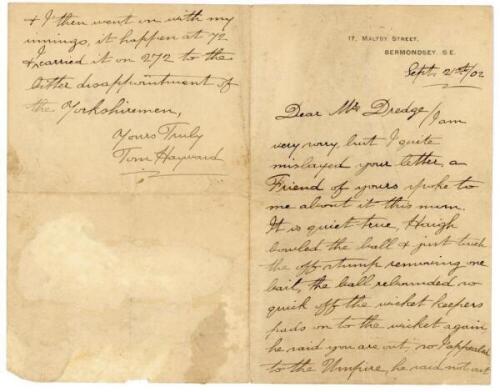 17, MALTBY STREET,
BERMONDSEY, S.E.
Sept. 21st/02
Dear Mrs Dredge / I am
very sorry, but I quite
mislayed your letter, a
Friend of yours spoke to
me about it this mum.
It is quiet true, Haigh
bowled the ball & just touch
the off stump removing one
bail, the ball rebounded so
quick off the wicket keepers
pads on to the wicket again
he said you are out, so I appealed
to the Umpire, he said not out
& I then went on with my
innings, it happen at 72
I carried it on 272 to the
bitter disappointment of
the Yorkshiremen,
Yours Truly
Tom Hayward